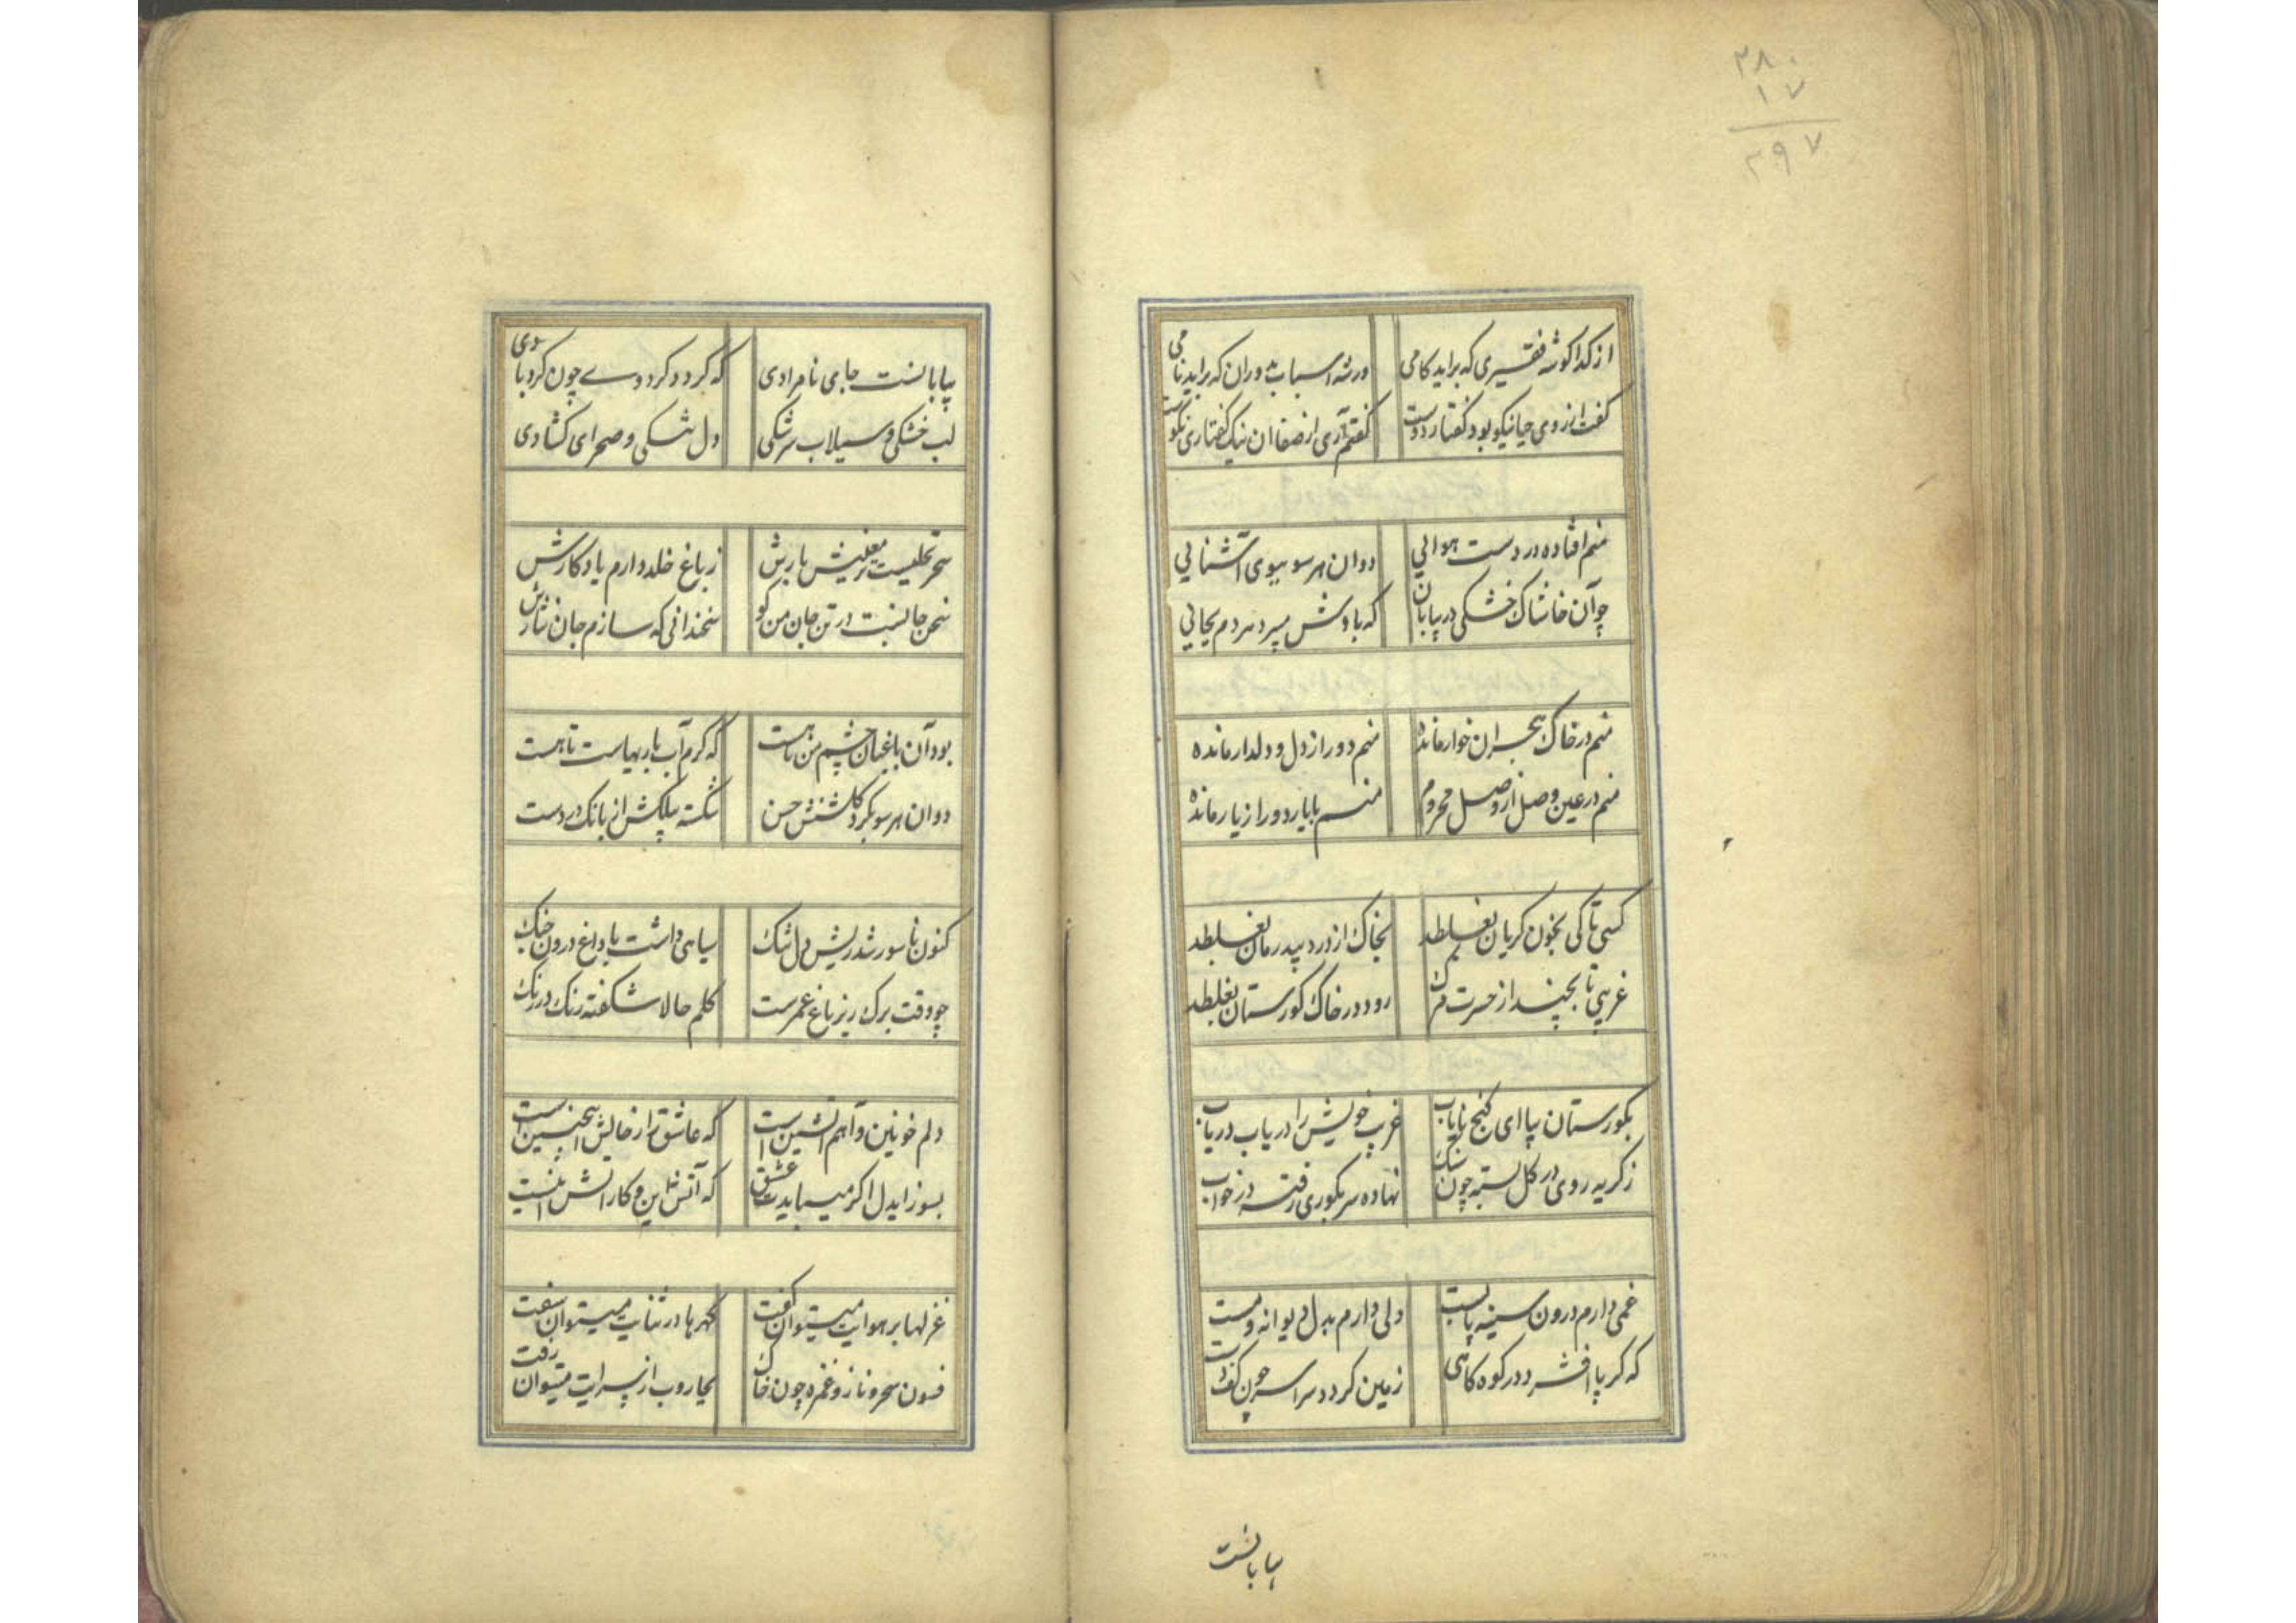 ۲۸۰
۱۷
۲۹۷
از کدا کوشه فقیری که براید کامی ور شه اسباب بدوران که براید نامی
کفت از روی حیا نیکو بود کفتار دوست کفتم آری از صفا ان نیک کفتاری نکوست
منم افتاده در دست هوائی دوان هر سو ببوی آشنائی
چو آن خاشاک خشکی در بیابان که بادش میبرد هر دم بجائی
منم در خاک هجران خوار مانده منم دور از دل و دلدار مانده
منم در عین وصل از وصل محروم منم با یار دور از یار مانده
کسی تا کی بخون کریان بغلطد بخاک از درد بیدرمان بغلطد
غریبی تا بچند از حسرت مرک رود در خاک کورستان بغلطد
بکورستان بیا ای کنج نایاب غریب خویش را دریاب دریاب
ز کریه روی در کل بسته چون سنک نهاده سر بکوری رفته در خواب
غمی دارم درون سینه پابست دلی دارم بدل دیوانه و مست
که کر پا افشرد در کوه کاهی زمین کردد سراسر چون کف دست
بیابانست
بیابانست جامی نامرادی که کردد کرد وے چون کردبادی
لب خشکی و سیلاب سرشکی دل تنکی و صحرای کشادی
سحر نخلیست معنیش بارش ز باغ خلد دارم یادکارش
سخن جانست در تن جان من کو سخندانی که سازم جان نثارش
بود آن باغبان چشم من مست که کرم آب یاریهاست تا هست
دوان هر سو بکرد کلشنش حسن شکسته بیلکش از بانک در دست
کنون ناسور شد ریش دل تنک سیاهی داشت با داغ درون جنک
چو وقت برک ریز باغ عمرست کلم حالا شکفته رنک در رنک
دلم خونین و آهم اتشین است که عاشق را ز حالش اینچنین است
بسوز ایدل اکر میبایدت عشق که آتش دین و کار اتش اینست
غزلها بر هوایت میتوان کفت کهرها در ثنایت میتوان سفت
فسون سحر و ناز و غمزه چون خاک بجاروب از سرایت میتوان رفت